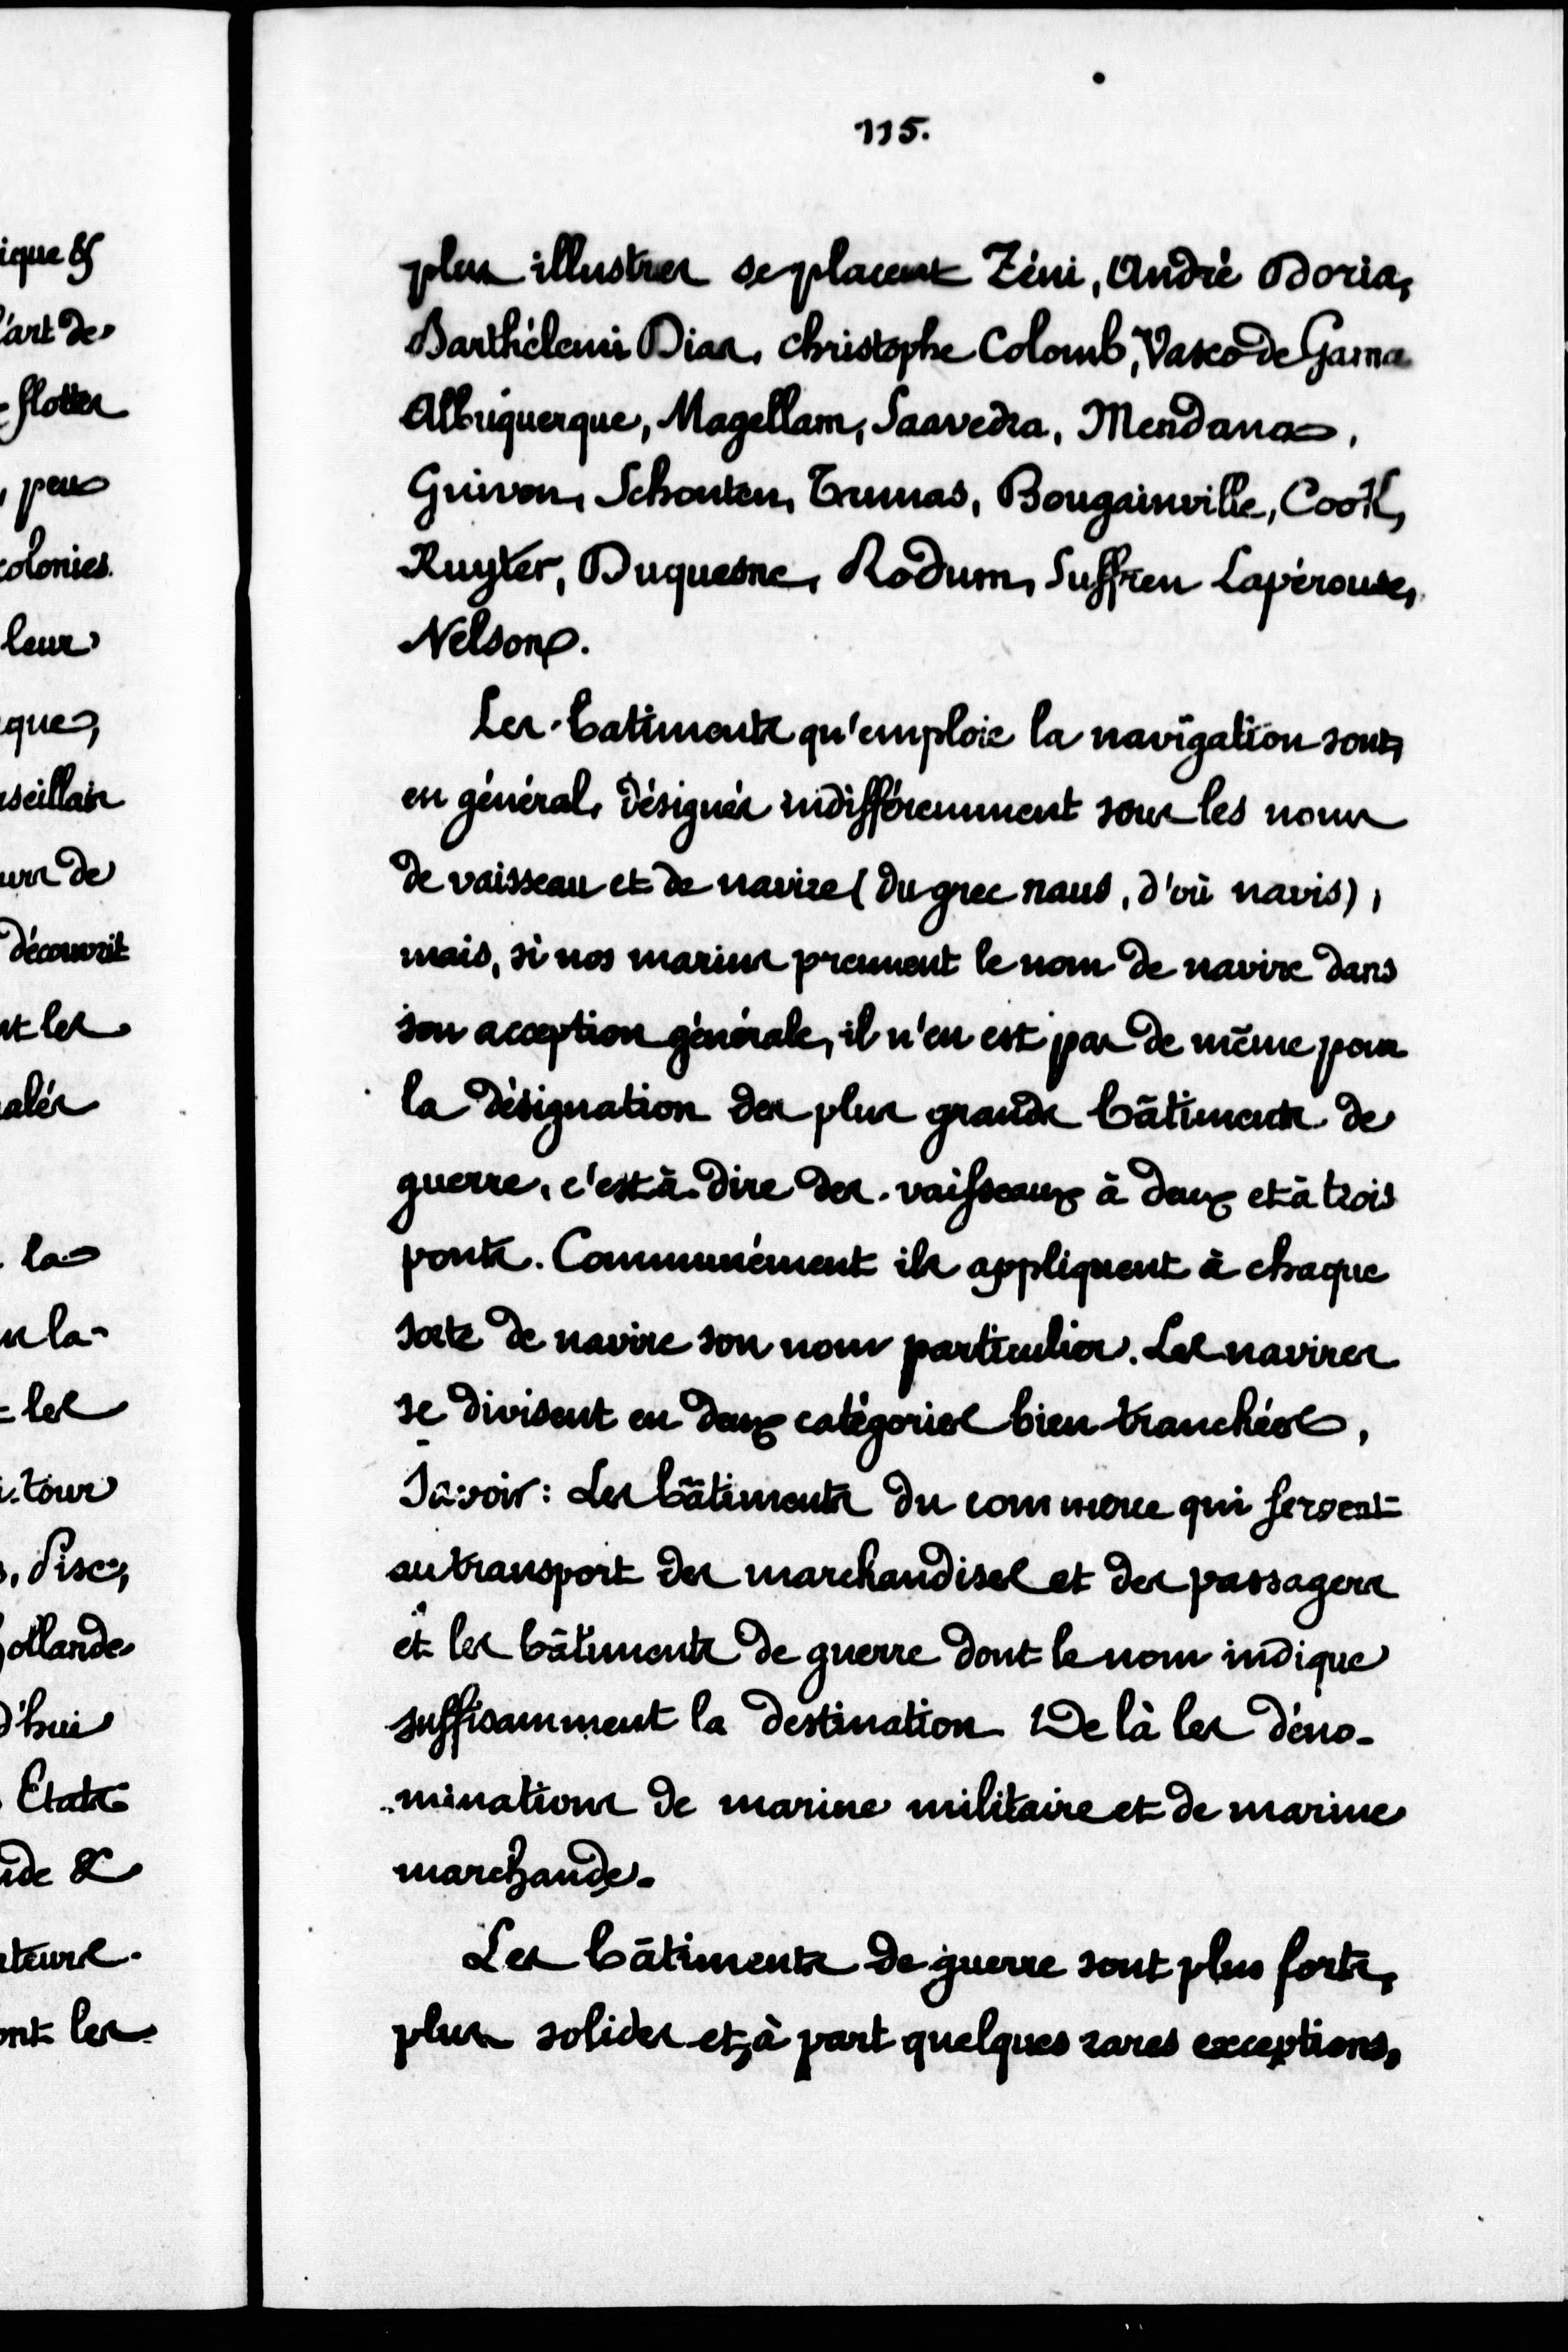 115.
plus illustres se placent Zéni, André Doria,
Barthélemi Dias, christophe Colomb, Vasco de Gama
Albuquerque, Magellam, Saavedra, Mendana,
Schouten, Bougainville, Cook,
Ruyter, Duquesne, Suffren Lapérouse,
Nelson.
Les batiments qu'emploie la navigation sont,
en général, désignés indifféremment sous les noms
de vaisseau et de navire (du grec naus, d'où navis),
mais, si nos marins prennent le nom de navire dans
son acception générale, il n'en est pas de même pour
la désignation des plus grands bâtiments de
guerre, c'est à dire des vaisseaux à deux et à trois
ponts. Communément ils appliquent à chaque
sorte de navire son nom particulier. Les navires
se divisent en deux catégories bien tranchées,
Savoir: Les bâtiments du commerce qui servent
au transport des marchandises et des passagers
et les bâtiments de guerre dont le nom indique
suffisamment la destination De là les déno-
minations de marine militaire et de marine
marchande.
Les bâtiments de guerre sont plus forts,
plus solides et, à part quelques rares exceptions,
ique &
l'art de
flottes
, peu
colonies.
leur
que,
seillais
de
découvrit
les
la
la
les
tour
, Pise,
hollande
d'hui
Etats
&
ateurs.
ont les